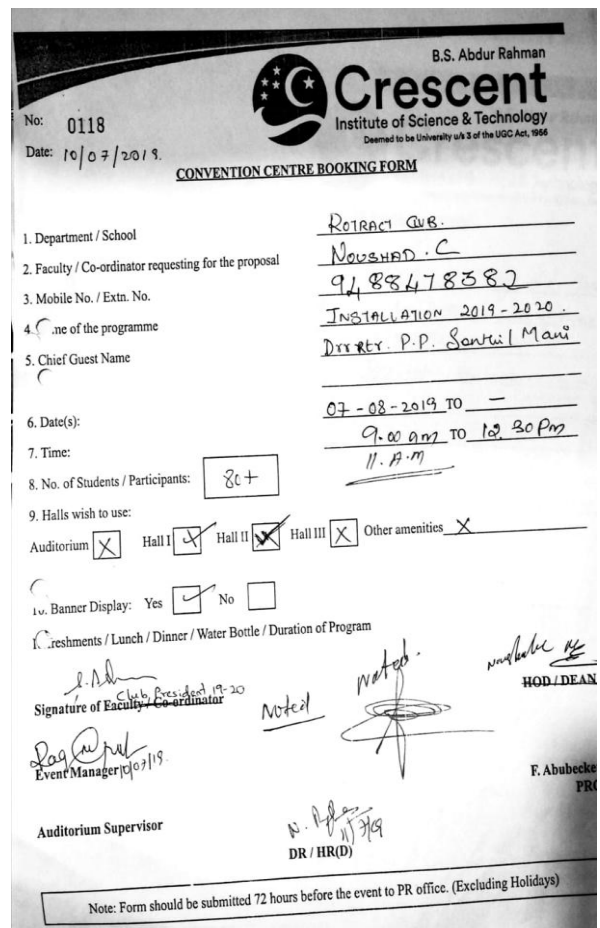 B.S. Abdur Rahman
Crescent
Institute of Science & Technology
Deemed to be University u/s 3 of the UGC Act, 1956
No: 0118
Date: 10/07/2019.
CONVENTION CENTRE BOOKING FORM
1. Department / School ROTRACT CLUB.
2. Faculty / Co-ordinator requesting for the proposal NOUSHAD. C
3. Mobile No. / Extn. No. 9488478382
4. me of the programme INSTALLATION 2019-2020.
5. Chief Guest Name Drr Rtr. P.P. Senthil Mani
6. Date(s): 07-08-2019 TO —
7. Time: 9.00 am TO 12.30 Pm
11. A.M
8. No. of Students / Participants: 80+
9. Halls wish to use:
Auditorium X Hall I ✓ Hall II Hall III X Other amenities X
10. Banner Display: Yes ✓ No
reshments / Lunch / Dinner / Water Bottle / Duration of Program
Club, President 19-20
Signature of Faculty / Co-ordinator
Noted
Noted.
HOD / DEAN
Event Manager 10/07/19.
F. Abubecke
PRO
Auditorium Supervisor
11/7/19
DR / HR(D)
Note: Form should be submitted 72 hours before the event to PR office. (Excluding Holidays)